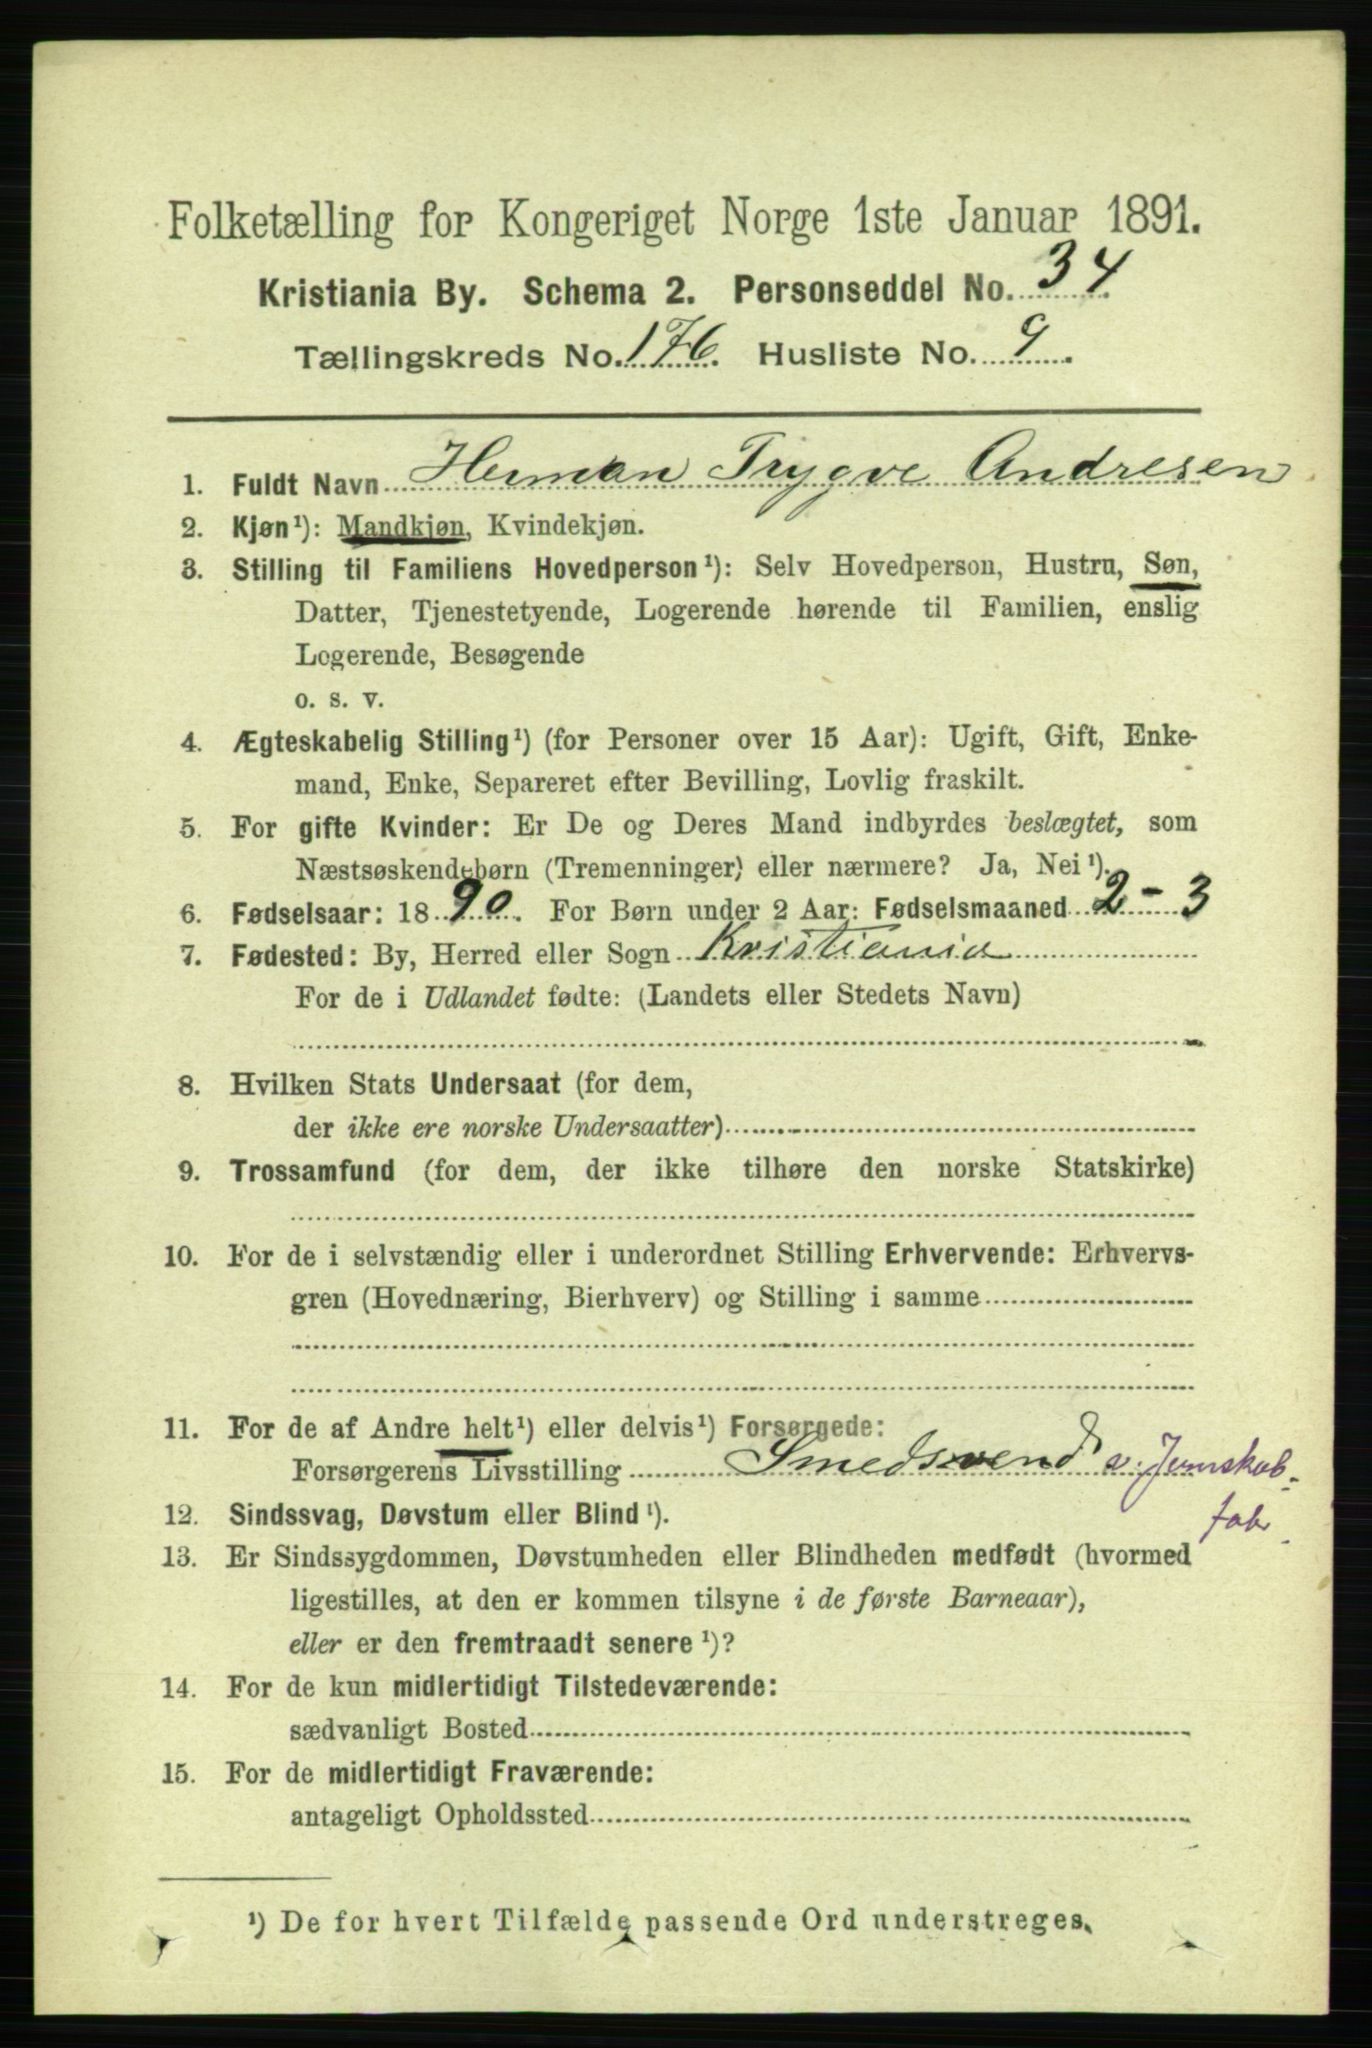 Folketælling for Kongeriget Norge 1ste Januar 1891.
Kristiania By. Schema 2. Personseddel No. 34
Tællingskreds No. 176. Husliste No. 9.
1. Fuldt Navn Herman Trygve Andresen
2. Kjøn¹): Mandkjøn, Kvindekjøn.
3. Stilling til Familiens Hovedperson¹): Selv Hovedperson, Hustru, Søn,
Datter, Tjenestetyende, Logerende hørende til Familien, enslig
Logerende, Besøgende
o. s. v.
4. Ægteskabelig Stilling¹) (for Personer over 15 Aar): Ugift, Gift, Enke-
mand, Enke, Separeret efter Bevilling, Lovlig fraskilt.
5. For gifte Kvinder: Er De og Deres Mand indbyrdes beslægtet, som
Næstsøskendebørn (Tremenninger) eller nærmere? Ja, Nei¹).
6. Fødselsaar: 1890. For Børn under 2 Aar: Fødselsmaaned 2 - 3
7. Fødested: By, Herred eller Sogn Kristiania
For de i Udlandet fødte: (Landets eller Stedets Navn)
8. Hvilken Stats Undersaat (for dem,
der ikke ere norske Undersaatter)
9. Trossamfund (for dem, der ikke tilhøre den norske Statskirke)
10. For de i selvstændig eller i underordnet Stilling Erhvervende: Erhvervs-
gren (Hovednæring, Bierhverv) og Stilling i samme
11. For de af Andre helt¹) eller delvis¹) Forsørgede:
Forsørgerens Livsstilling Smedsvend v. Jernskab-
fabr.
12. Sindssvag, Døvstum eller Blind¹).
13. Er Sindssygdommen, Døvstumheden eller Blindheden medfødt (hvormed
ligestilles, at den er kommen tilsyne i de første Barneaar),
eller er den fremtraadt senere¹)?
14. For de kun midlertidigt Tilstedeværende:
sædvanligt Bosted
15. For de midlertidigt Fraværende:
antageligt Opholdssted
¹) De for hvert Tilfælde passende Ord understreges.